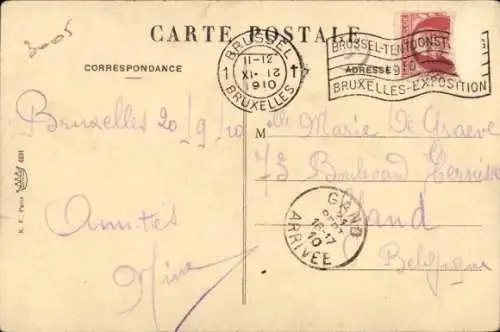 3005
CARTE POSTALE
CORRESPONDANCE
ADRESSE
BRUSSEL
11-12
XI. 12
1910
1 1
BRUXELLES
BRUSSEL-TENTOONST.
1910
BRUXELLES-EXPOSITION
Bruxelles 20/9/10
Amitiés
Mlle Marie De Graeve
73 Boulevard
Gand
Belgique
GAND
SEPT
16-17
10
ARRIVÉE
N. F. Paris